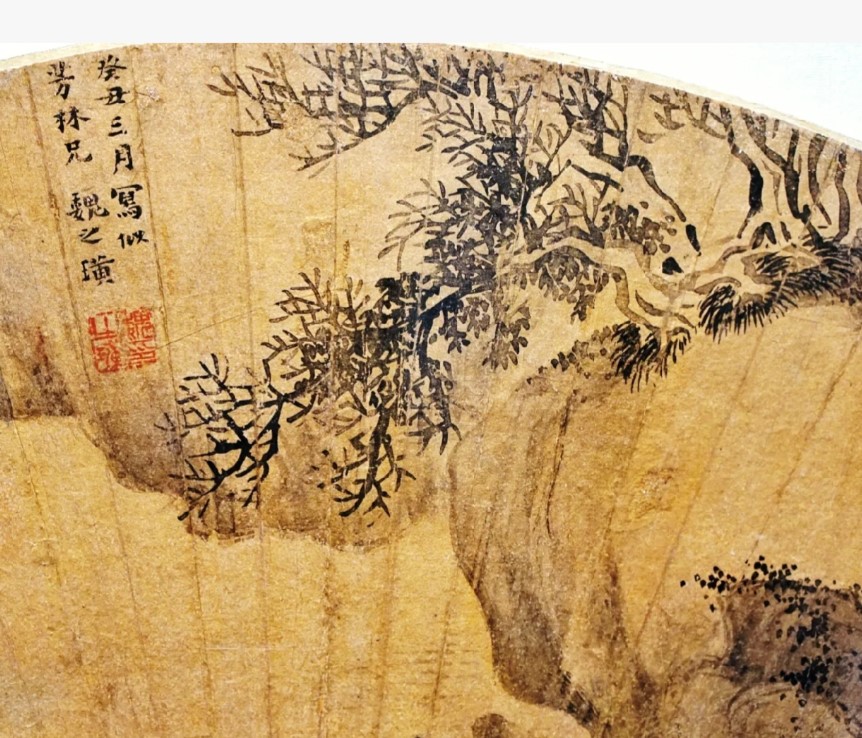 癸丑三月寫似
芳林兄 魏之璜